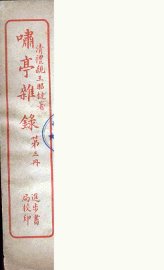 清禮親王昭槤著
嘯亭雜錄
第二冊
進步書
局校印